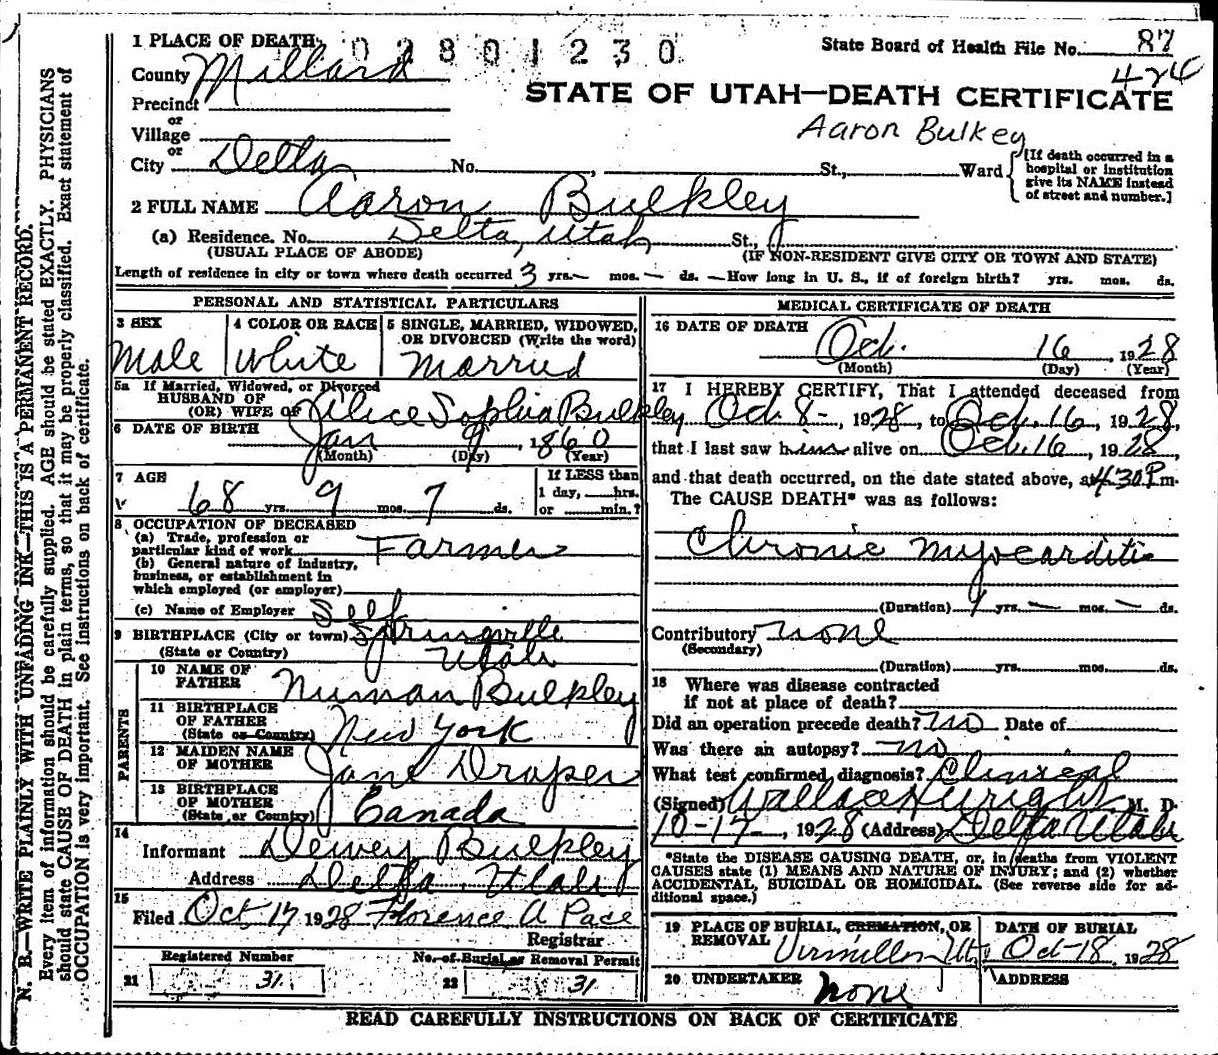 1 PLACE OF DEATH
02801230
State Board of Health File No. 87
424
County Millard
STATE OF UTAH—DEATH CERTIFICATE
Precinct
or
Village
Aaron Bulkey
or
City Delta No. , St., Ward
[If death occurred in a
hospital or institution
give its NAME instead
of street and number.]
2 FULL NAME Aaron Bulkley
(a) Residence. No. Delta, Utah St.,
(USUAL PLACE OF ABODE) (IF NON-RESIDENT GIVE CITY OR TOWN AND STATE)
Length of residence in city or town where death occurred 3 yrs. — mos. — ds. — How long in U. S., if of foreign birth? yrs. mos. ds.
PERSONAL AND STATISTICAL PARTICULARS
3 SEX 4 COLOR OR RACE 5 SINGLE, MARRIED, WIDOWED,
OR DIVORCED (Write the word)
Male White Married
5a If Married, Widowed, or Divorced
HUSBAND OF
(OR) WIFE OF Alice Sophia Bulkley
6 DATE OF BIRTH Jan 9, 1860
(Month) (Day) (Year)
7 AGE If LESS than
1 day, hrs.
68 yrs. 9 mos. 7 ds. or min.?
8 OCCUPATION OF DECEASED
(a) Trade, profession or
particular kind of work Farmer
(b) General nature of industry,
business, or establishment in
which employed (or employer)
(c) Name of Employer Self
9 BIRTHPLACE (City or town) Springville
(State or Country) Utah
PARENTS
10 NAME OF
FATHER Numan Bulkley
11 BIRTHPLACE
OF FATHER
(State or Country) New York
12 MAIDEN NAME
OF MOTHER Jane Draper
13 BIRTHPLACE
OF MOTHER
(State or Country) Canada
14
Informant Dewey Bulkley
Address Delta, Utah
15
Filed Oct 17 1928 Florence A Pace
Registrar
Registered Number No. of Burial or Removal Permit
21 31 22 31
MEDICAL CERTIFICATE OF DEATH
16 DATE OF DEATH
Oct. 16, 1928
(Month) (Day) (Year)
17 I HEREBY CERTIFY, That I attended deceased from
Oct 8-, 1928, to Oct. 16, 1928,
that I last saw him alive on Oct. 16, 1928,
and that death occurred, on the date stated above, at 4.30 P.m.
The CAUSE DEATH* was as follows:
Chronic Myocarditis
(Duration) yrs. — mos. — ds.
Contributory None
(Secondary)
(Duration) yrs. mos. ds.
18 Where was disease contracted
if not at place of death?
Did an operation precede death? No Date of
Was there an autopsy? No
What test confirmed diagnosis? Clinical
(Signed) Wallace H Wright M. D.
10-17-, 1928 (Address) Delta Utah
*State the DISEASE CAUSING DEATH, or, in deaths from VIOLENT
CAUSES state (1) MEANS AND NATURE OF INJURY; and (2) whether
ACCIDENTAL, SUICIDAL OR HOMICIDAL. (See reverse side for ad-
ditional space.)
19 PLACE OF BURIAL, CREMATION, OR DATE OF BURIAL
REMOVAL Vermillon Ut. Oct-18, 1928
20 UNDERTAKER None ADDRESS
READ CAREFULLY INSTRUCTIONS ON BACK OF CERTIFICATE
N. B.—WRITE PLAINLY WITH UNFADING INK—THIS IS A PERMANENT RECORD.
Every item of information should be carefully supplied. AGE should be stated EXACTLY. PHYSICIANS
should state CAUSE OF DEATH in plain terms, so that it may be properly classified. Exact statement of
OCCUPATION is very important. See instructions on back of certificate.